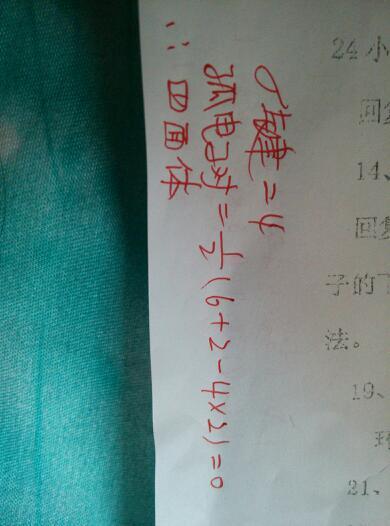 σ键=4
孤电子对=1/2(6+2-4×2)=0
∴四面体
24、小
回复
14、
回复
子的下
法。
19、
21、